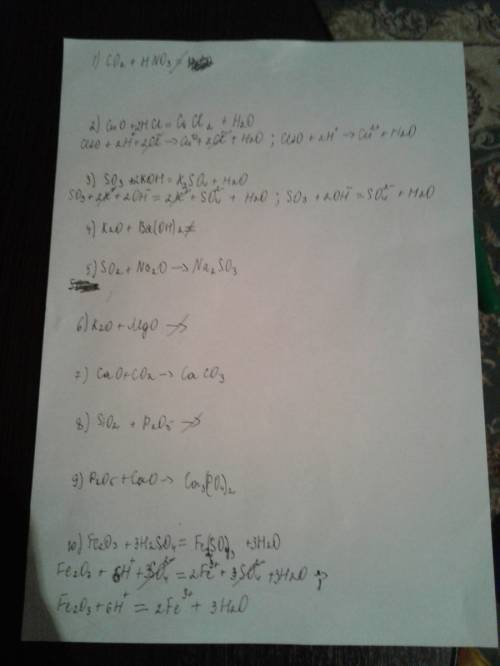 1) CO2 + HNO3 ≠
2) CuO + 2HCl = CuCl2 + H2O
CuO + 2H+ + 2Cl- → Cu2+ + 2Cl- + H2O ; CuO + 2H+ → Cu2+ + H2O
3) SO3 + 2KOH = K2SO4 + H2O
SO3 + 2K+ + 2OH- = 2K+ + SO4 2- + H2O ; SO3 + 2OH- = SO4 2- + H2O
4) K2O + Ba(OH)2 ≠
5) SO2 + Na2O → Na2SO3
6) K2O + MgO ↛
7) CaO + CO2 → CaCO3
8) SiO2 + P2O5 ↛
9) P2O5 + CaO → Ca3(PO4)2
10) Fe2O3 + 3H2SO4 = Fe2(SO4)3 + 3H2O
Fe2O3 + 6H+ + 3SO4 2- = 2Fe3+ + 3SO4 2- + 3H2O
Fe2O3 + 6H+ = 2Fe3+ + 3H2O